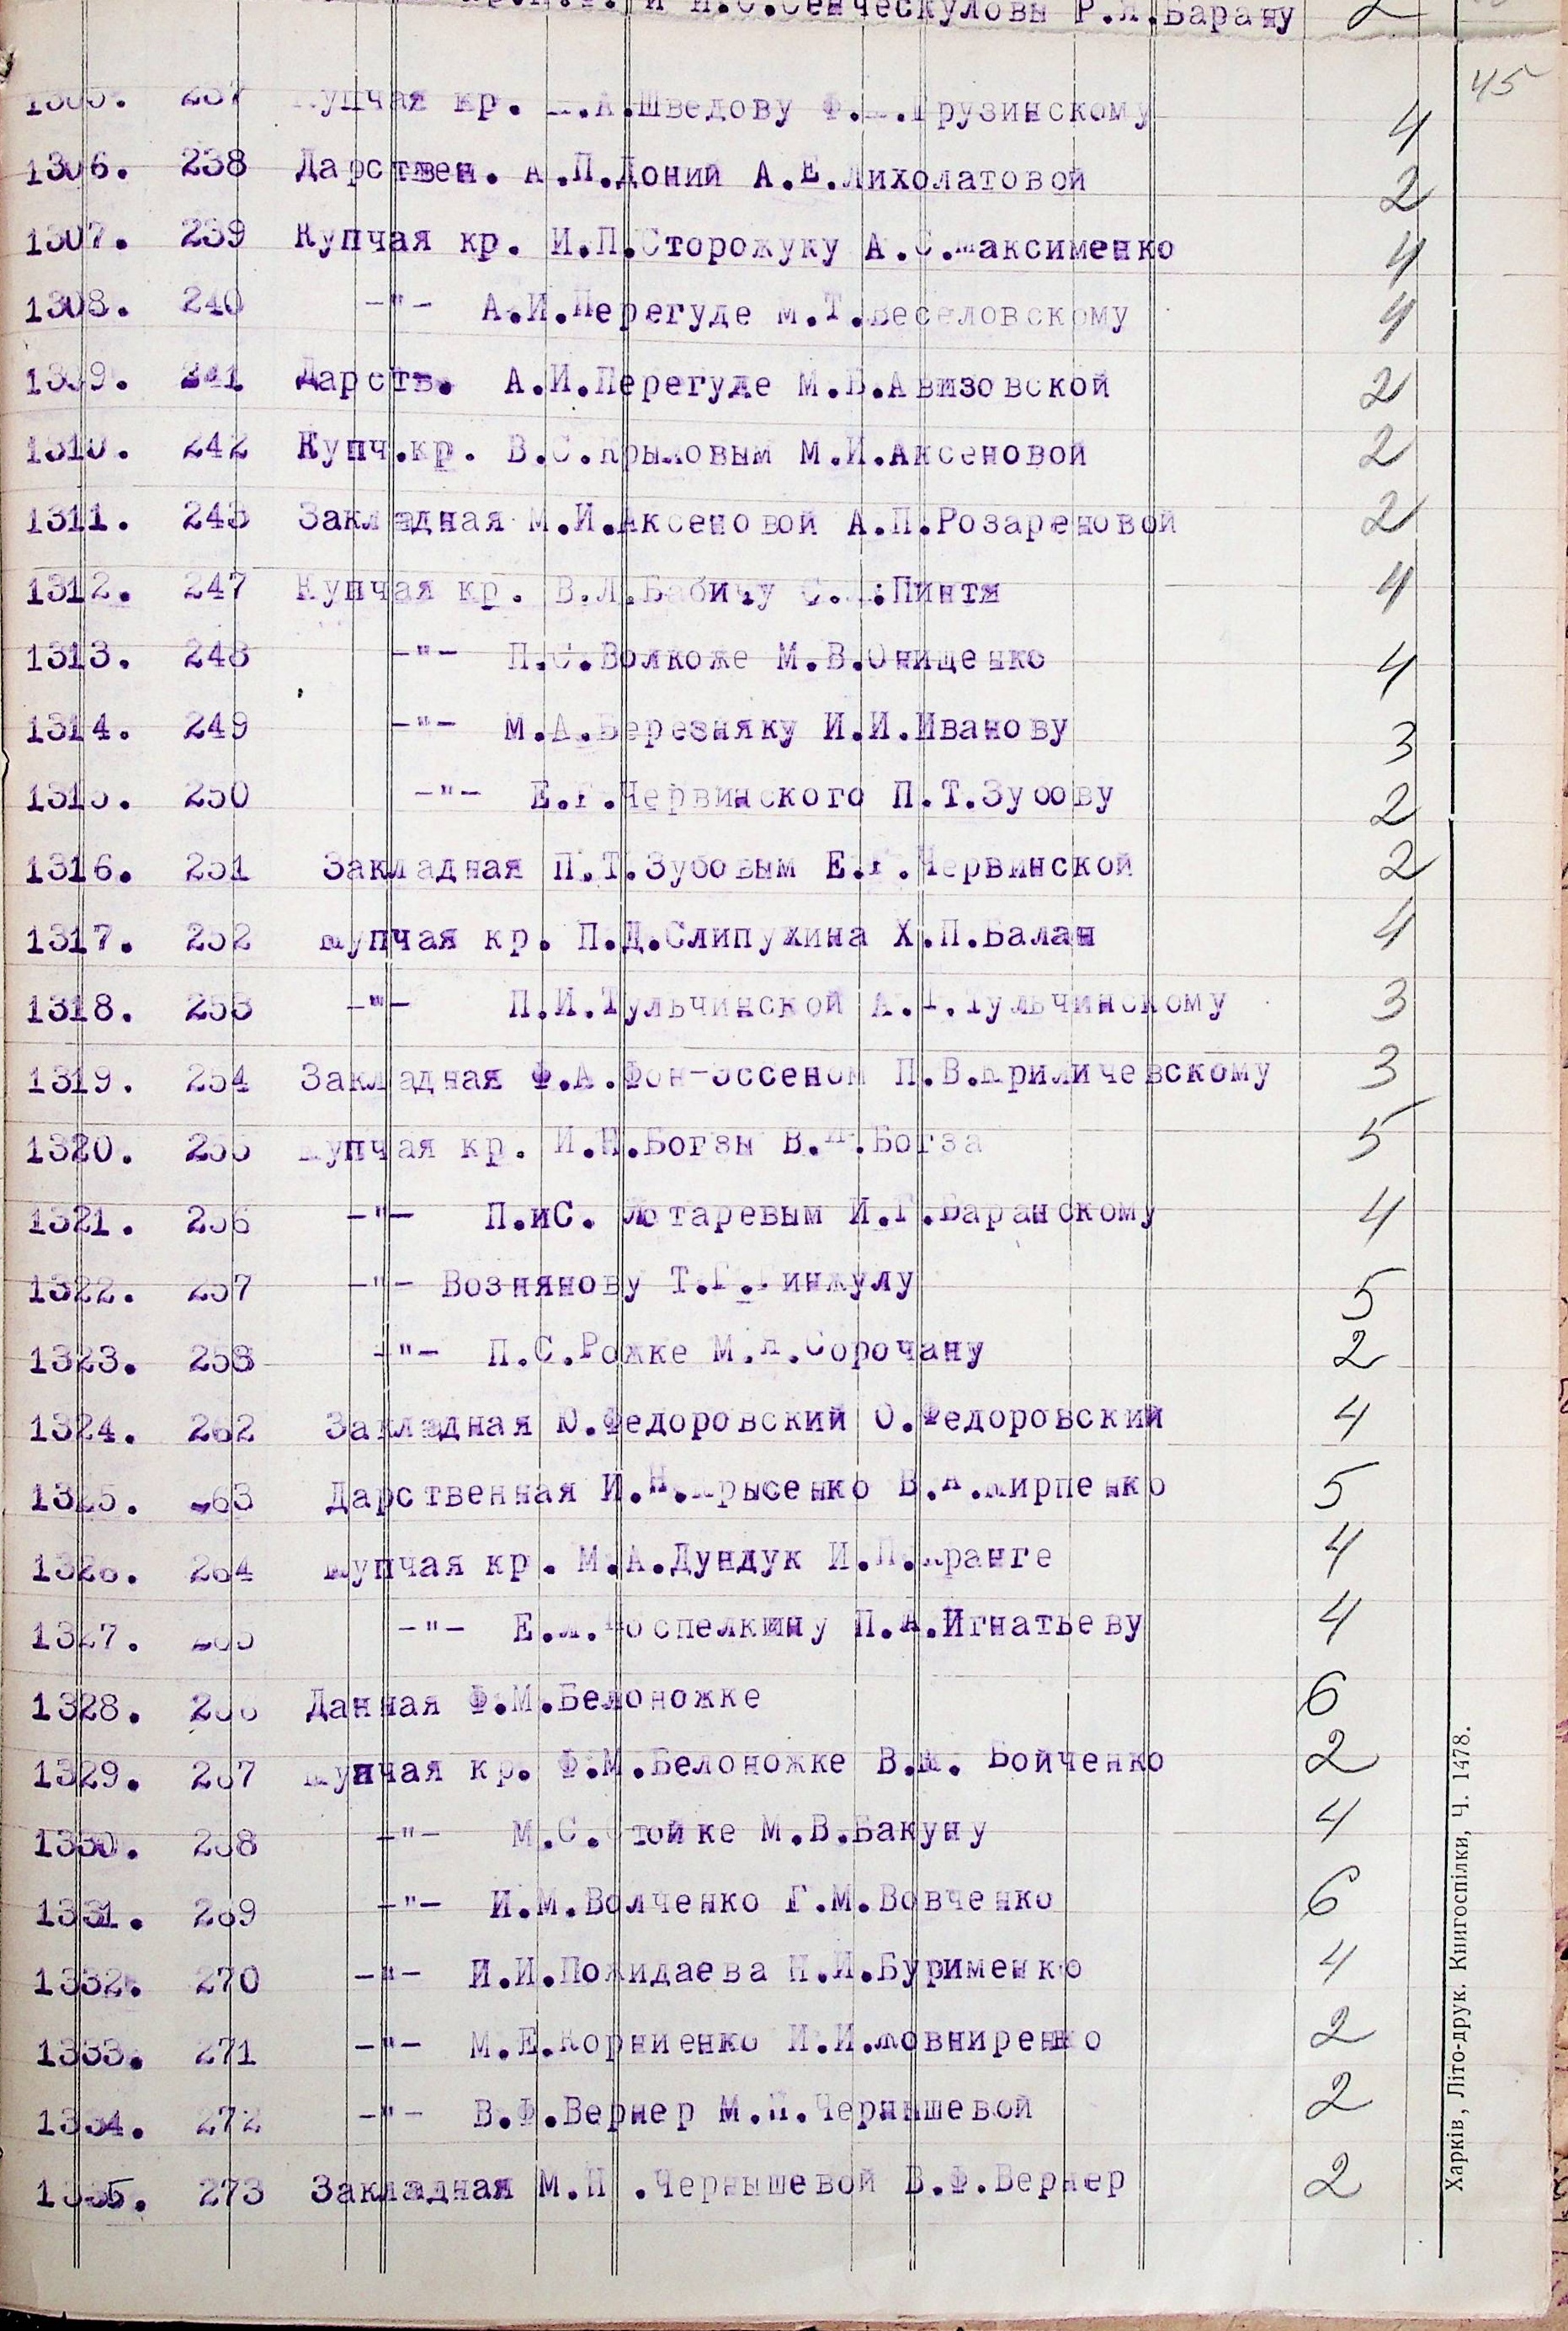 и Н.С.Сенческуловы Р.Я.Барану 2
45
1305. 237 Купчая кр. А.Шведову Ф. Грузинскому 4
1306. 238 Дарствен. А.П.Доний А.Е.Лихолатовой 2
1307. 239 Купчая кр. И.П.Сторожуку А.С.Максименко 4
1308. 240 -"- А.И.Перегуде М.Т.Веселовскому 4
1309. 241 Дарств. А.И.Перегуде М.В.Авизовской 2
1310. 242 Купч.кр. В.С.Крыловым М.И.Аксеновой 2
1311. 243 Закладная М.И.Аксеновой А.П.Розареновой 2
1312. 247 Купчая кр. В.Л.Бабичу Пинтя 4
1313. 248 -"- П.С.Волкоже М.В.Онищенко 4
1314. 249 -"- М.А.Березняку И.И.Иванову 3
1315. 250 -"- Е.Г.Червинского П.Т.Зубову 2
1316. 251 Закладная П.Т.Зубовым Е.Г.Червинской 2
1317. 252 Купчая кр. П.Д.Слипухина Х.П.Балан 4
1318. 253 -"- П.И.Тульчинской Тульчинскому 3
1319. 254 Закладная Ф.А.Фон-Эссеном П.В.Криличевскому 3
1320. 255 Купчая кр. И.Н.Богзы Богза 5
1321. 256 -"- П.иС. Лотаревым И.Г.Баранскому 4
1322. 257 -"- Вознянову Т.Г.Гинжулу 5
1323. 258 -"- П.С.Рожке Сорочану 2
1324. 262 Закладная Ю.Федоровский О.Федоровский 4
1325. 263 Дарственная И.Н.Крысенко Кирпенко 5
1326. 264 Купчая кр. М.А.Дундук И.П.Кранге 4
1327. 265 -"- Поспелкину П.А.Игнатьеву 4
1328. 266 Данная Ф.М.Белоножке 6
1329. 267 Купчая кр. Ф.М.Белоножке Бойченко 2
1330. 268 -"- М.С.Стойке М.В.Бакуну 4
1331. 269 -"- И.М.Волченко Г.М.Вовченко 6
1332. 270 -"- И.И.Пожидаева Н.И.Бурименко 4
1333. 271 -"- М.Е.Корниенко И.И.Жовниренко 2
1334. 272 -"- В.Ф.Вернер М.Н.Чернышевой 2
1335. 273 Закладная М.Н .Чернышевой В.Ф.Вернер 2
Харків, Літо-друк. Книгоспілки, Ч. 1478.